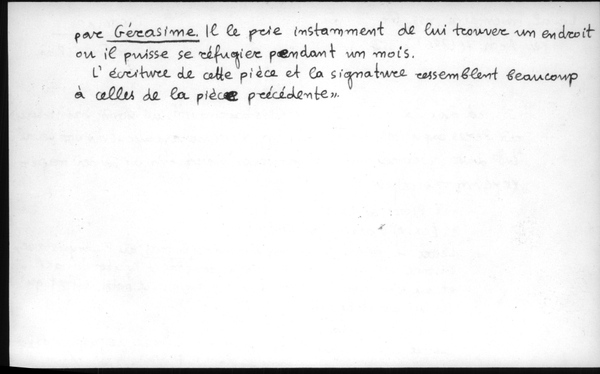 par Gérasime. Il le prie instamment de lui trouver un endroit
ou il puisse se réfugier pendant un mois.
L' écriture de cette pièce et la signature ressemblent beaucoup
à celles de la pièce précédente».